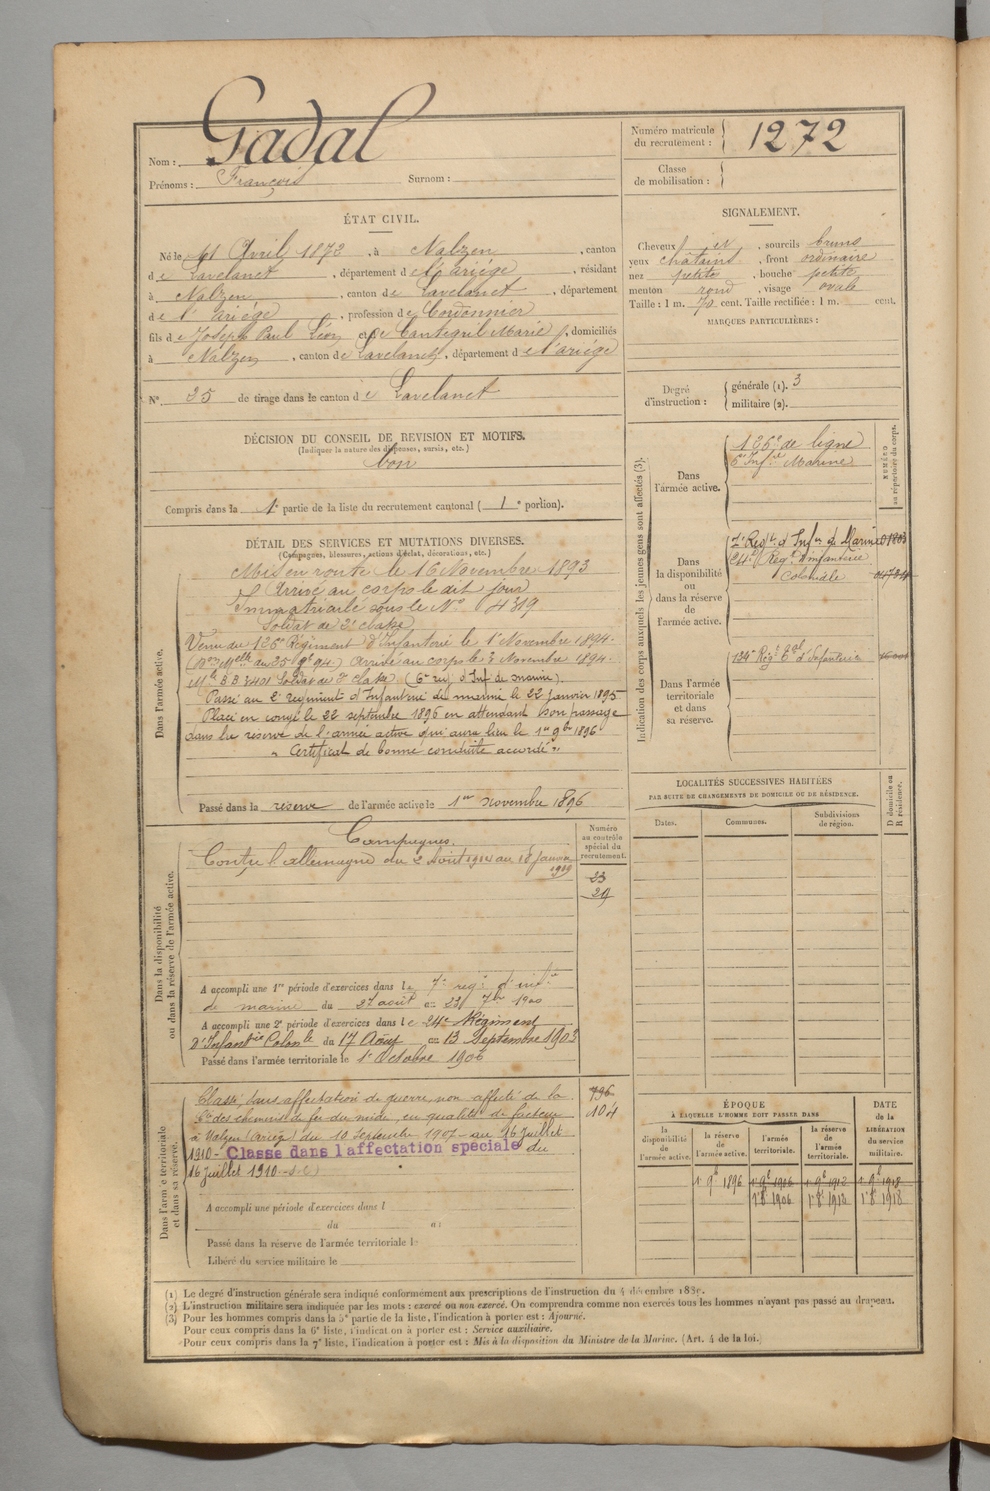 Nom : Gadal
Prénoms : François Surnom :
Numéro matricule du recrutement : 1272
Classe de mobilisation :
ÉTAT CIVIL.
Né le 11 Avril 1872, à Nalzen, canton
de Lavelanet, département de l'Ariège, résidant
à Nalzen, canton de Lavelanet, département
de l'Ariége, profession de Cordonnier
fils de Joseph Paul Léon et de Canteguil Marie, domiciliés
à Nalzen, canton de Lavelanet, département de l'Ariége
N° 35 de tirage dans le canton de Lavelanet
SIGNALEMENT.
Cheveux et, sourcils bruns
yeux châtains, front ordinaire
nez petite, bouche petite
menton rond, visage ovale
Taille : 1 m. 70 cent. Taille rectifiée : 1 m. cent.
MARQUES PARTICULIÈRES :
Degré d'instruction : générale (1). 3
militaire (2).
DÉCISION DU CONSEIL DE REVISION ET MOTIFS.
(Indiquer la nature des dispenses, sursis, etc.)
bon
Compris dans la 1e partie de la liste du recrutement cantonal (1e portion).
DÉTAIL DES SERVICES ET MUTATIONS DIVERSES.
(Campagnes, blessures, actions d'éclat, décorations, etc.)
Dans l'armée active.
Mis en route le 16 Novembre 1893
Arrivé au corps le dit jour
Immatriculé sous le N° 4319
Soldat de 2e classe
Venu du 126e Régiment d'Infanterie le 1er Novembre 1894.
Arrivé au corps le 3 Novembre 1894.
Soldat de 2e classe (6e rég d'Inf de marine).
Passé au 2e régiment d'Infanterie de marine le 22 janvier 1895
Placé en congé le 22 septembre 1896 en attendant son passage
dans la réserve de l'armée active qui aura lieu le 1er 9bre 1896
"Certificat de bonne conduite accordé"
Passé dans la réserve de l'armée active le 1er novembre 1896
Indication des corps auxquels les jeunes gens sont affectés (3).
NUMÉRO au répertoire du corps.
Dans l'armée active.
126e de ligne
6e Infie Marine
Dans la disponibilité ou dans la réserve de l'armée active.
7e Regt d'Infie de Marine
24e Regt d'infanterie
Coloniale
Dans l'armée territoriale et dans sa réserve.
134e Régt Tal d'Infanterie
LOCALITÉS SUCCESSIVES HABITÉES
PAR SUITE DE CHANGEMENTS DE DOMICILE OU DE RÉSIDENCE.
Dates. Communes. Subdivisions de région. D domicile ou R résidence.
Numéro au contrôle spécial du recrutement.
Dans la disponibilité ou dans la réserve de l'armée active.
Campagnes.
Contre l'allemagne du 2 Aoit 1914 au 18 janvier
1919
23
29
A accompli une 1re période d'exercices dans le 7e régt d'infie
de marine du 27 août au 23 7bre 1900
A accompli une 2e période d'exercices dans le 24e Régiment
D'Infantie Colonle du 17 Août au 13 Septembre 1903
Passé dans l'armée territoriale le 1er Octobre 1906
Dans l'armée territoriale et dans sa réserve.
Classé dans affectation de guerre, non affecté de la
Cie des chemins de fer du midi, en qualité de facteur
à Nalzen (Ariège) du 10 Septembre 1907 au 16 juillet
1910 - Classé dans l'affectation spéciale du
16 juillet 1910
796
104
A accompli une période d'exercices dans l
du au
Passé dans la réserve de l'armée territoriale le
Libéré du service militaire le
ÉPOQUE
À LAQUELLE L'HOMME DOIT PASSER DANS
DATE de la LIBÉRATION du service militaire.
la disponibilité de l'armée active. la réserve de l'armée active. l'armée territoriale. la réserve de l'armée territoriale.
1er 9b 1896 1er 9b 1906 1er 9b 1912 1er 9b 1918
1er 8b 1906 1er 8b 1912 1er 8b 1918
(1) Le degré d'instruction générale sera indiqué conformément aux prescriptions de l'instruction du 4 décembre 1889.
(2) L'instruction militaire sera indiquée par les mots : exercé ou non exercé. On comprendra comme non exercés tous les hommes n'ayant pas passé au drapeau.
(3) Pour les hommes compris dans la 5e partie de la liste, l'indication à porter est : Ajourné.
Pour ceux compris dans la 6e liste, l'indication à porter est : Service auxiliaire.
Pour ceux compris dans la 7e liste, l'indication à porter est : Mis à la disposition du Ministre de la Marine. (Art. 4 de la loi.)